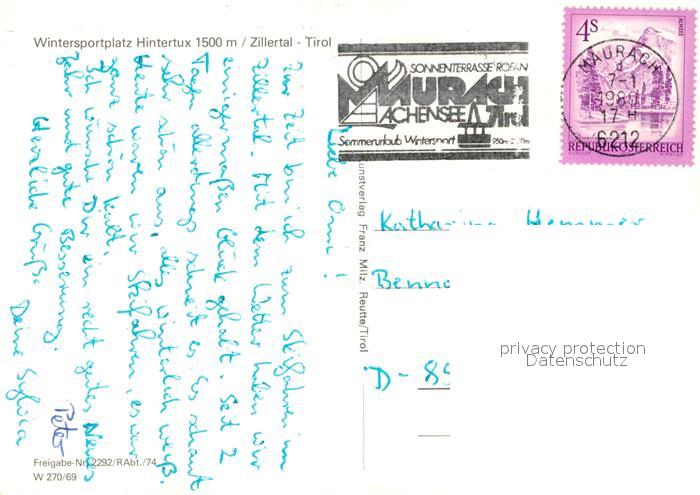 Wintersportplatz Hintertux 1500 m / Zillertal - Tirol
Liebe Omi!
Zur Zeit bin ich zum Skifahren im
Zillertal. Mit dem Wetter haben wir
einigermaßen Glück gehabt. Seit 2
Tagen allerdings schneit es. Es schaut
sehr schön aus, alles winterlich weiß.
Heute waren wir Skifahren, es war
ganz schön kalt.
Ich wünsche Dir ein recht gutes Neues
Jahr und gute Besserung.
Herzliche Grüße
Deine Sylvia
Peter
Freigabe-Nr. 2292/RAbt./74
W 270/69
Kunstverlag Franz Milz, Reutte/Tirol
SONNENTERRASSE ROFAN
MAURACH
ACHENSEE Tirol
Sommerurlaub Wintersport
4S
ALMSEE
REPUBLIK ÖSTERREICH
MAURACH
7-1
1980
17H
6212
Katharina Hemmer
Benno
D-85
privacy protection
Datenschutz